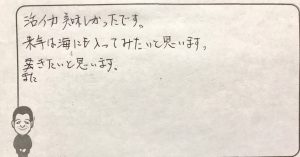 活イカ美味しかったです。
来年は海にも入ってみたいと思います。
また来たいと思います。